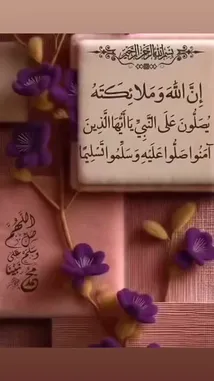 بسم الله الرحمن الرحيم
إِنَّ اللَّهَ وَمَلَائِكَتَهُ
يُصَلُّونَ عَلَى النَّبِيِّ يَا أَيُّهَا الَّذِينَ
آمَنُوا صَلُّوا عَلَيْهِ وَسَلِّمُوا تَسْلِيمًا
اللهم
صل
وسلم على
نبينا
محمد